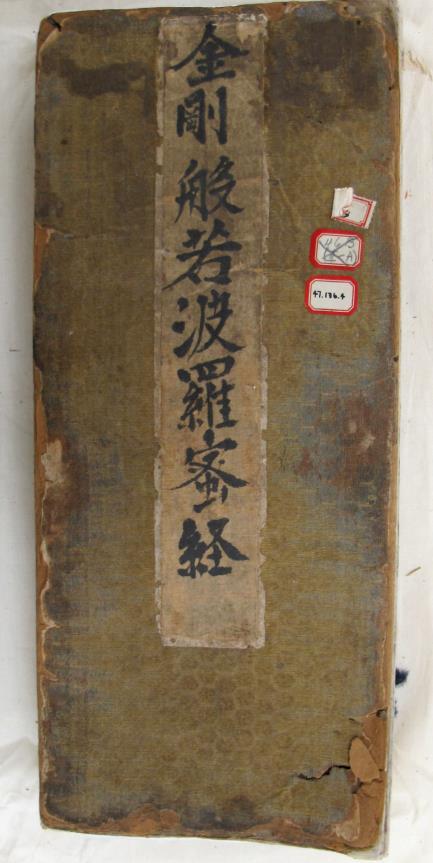 金剛般若波羅蜜経
47.136.4